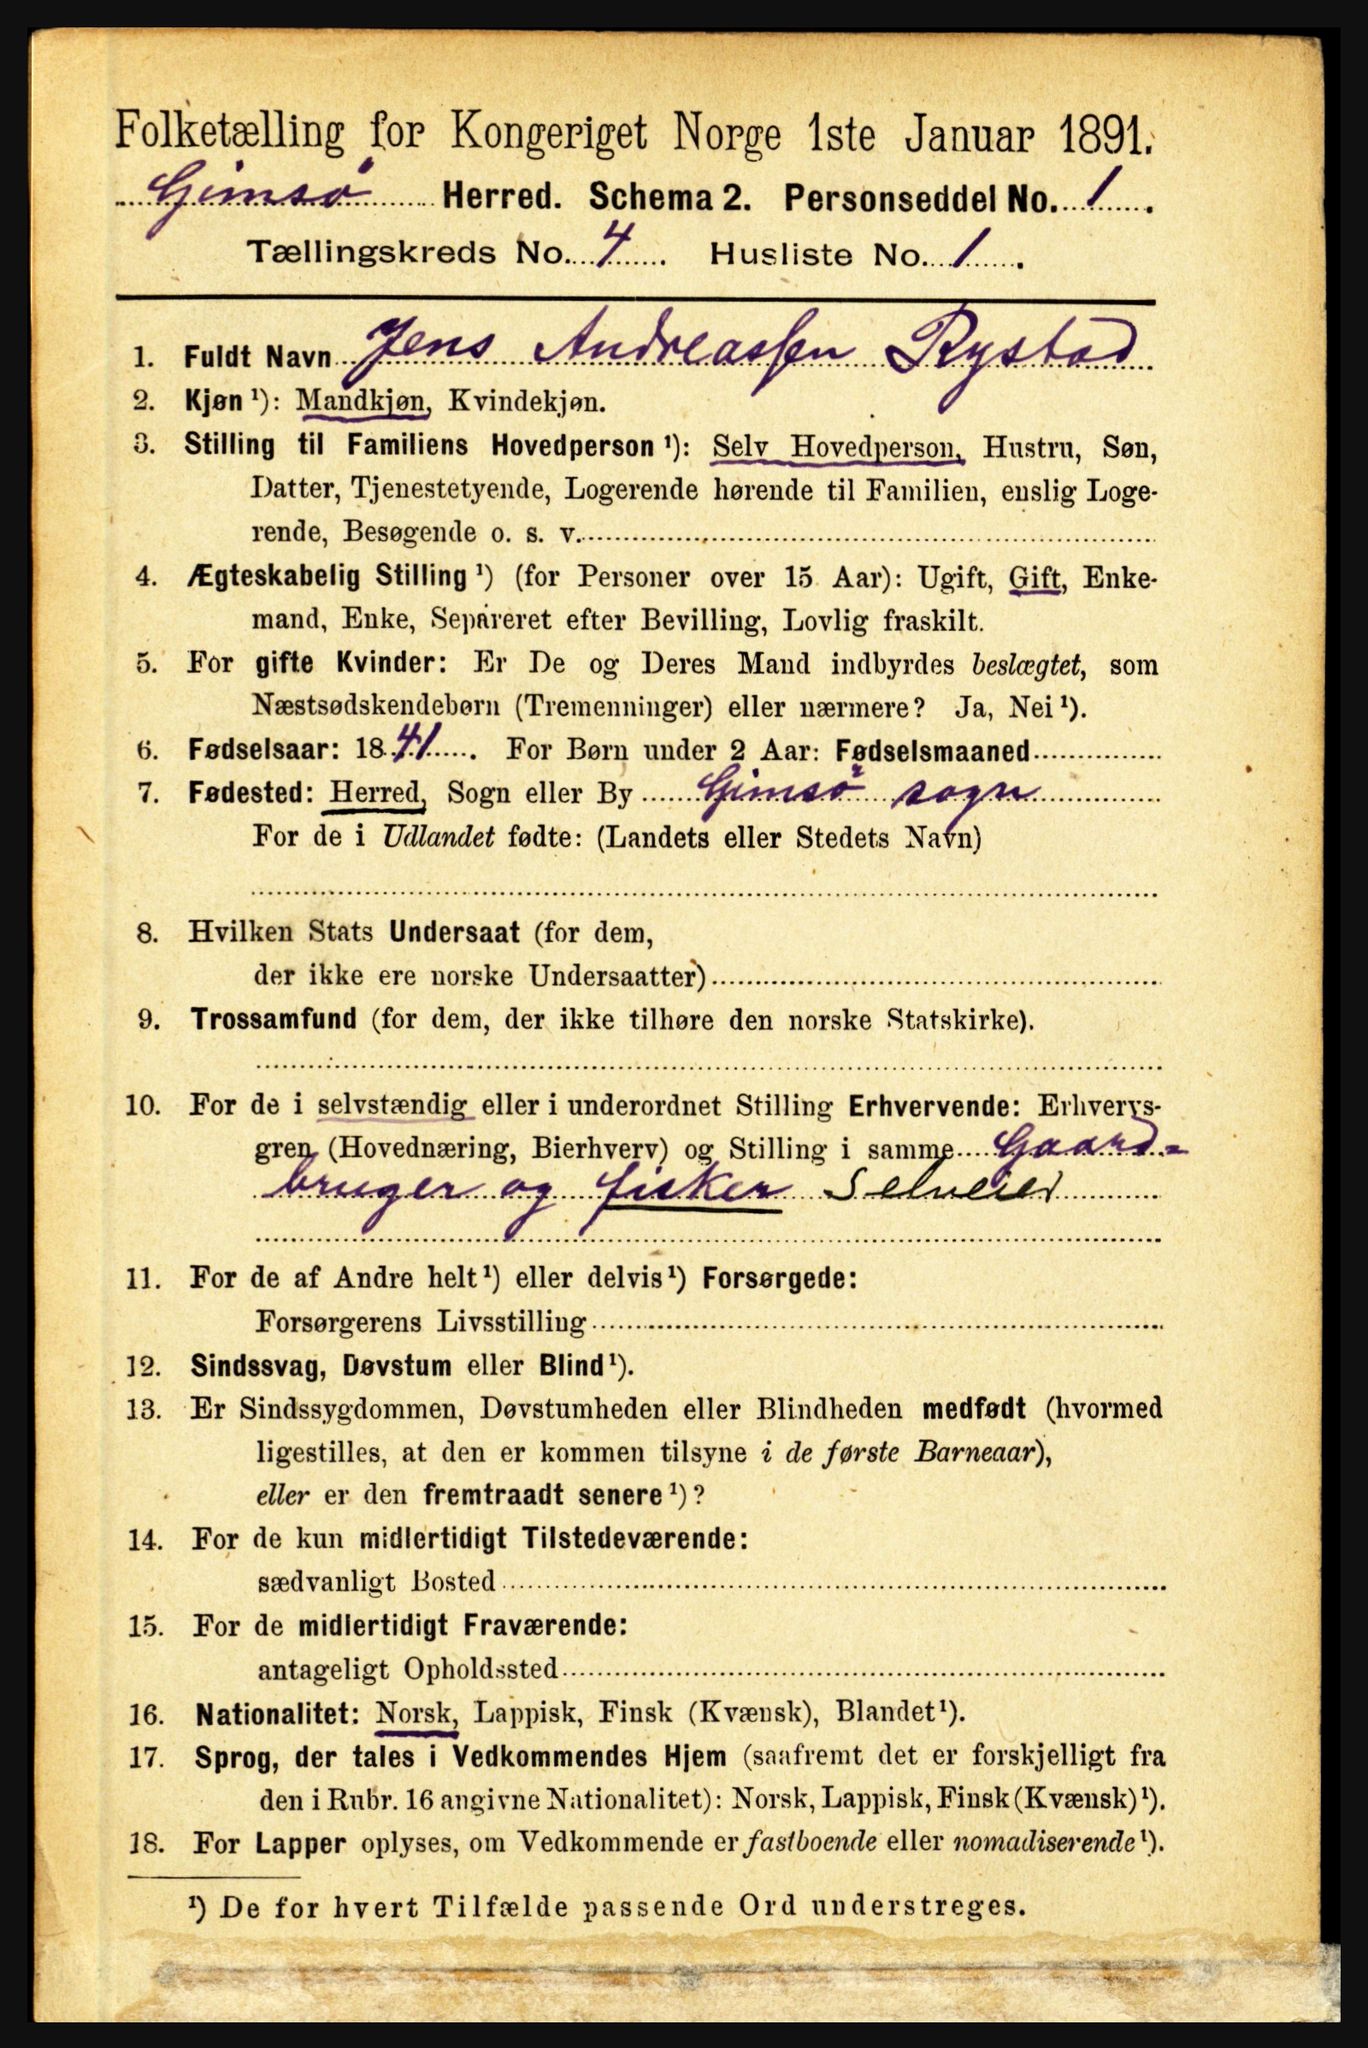 Folketælling for Kongeriget Norge 1ste Januar 1891.
Gimsø Herred. Schema 2. Personseddel No. 1.
Tællingskreds No. 4. Husliste No. 1.
1. Fuldt Navn Jens Andreassen Rystad
2. Kjøn¹): Mandkjøn, Kvindekjøn.
3. Stilling til Familiens Hovedperson¹): Selv Hovedperson, Hustru, Søn,
Datter, Tjenestetyende, Logerende hørende til Familien, enslig Loge-
rende, Besøgende o. s. v.
4. Ægteskabelig Stilling¹) (for Personer over 15 Aar): Ugift, Gift, Enke-
mand, Enke, Separeret efter Bevilling, Lovlig fraskilt.
5. For gifte Kvinder: Er De og Deres Mand indbyrdes beslægtet, som
Næstsødskendebørn (Tremenninger) eller nærmere? Ja, Nei¹).
6. Fødselsaar: 1841. For Børn under 2 Aar: Fødselsmaaned
7. Fødested: Herred, Sogn eller By Gimsø sogn
For de i Udlandet fødte: (Landets eller Stedets Navn)
8. Hvilken Stats Undersaat (for dem,
der ikke ere norske Undersaatter)
9. Trossamfund (for dem, der ikke tilhøre den norske Statskirke).
10. For de i selvstændig eller i underordnet Stilling Erhvervende: Erhvervs-
gren (Hovednæring, Bierhverv) og Stilling i samme Gaard-
bruger og fisker Selveier
11. For de af Andre helt¹) eller delvis¹) Forsørgede:
Forsørgerens Livsstilling
12. Sindssvag, Døvstum eller Blind¹).
13. Er Sindssygdommen, Døvstumheden eller Blindheden medfødt (hvormed
ligestilles, at den er kommen tilsyne i de første Barneaar),
eller er den fremtraadt senere¹)?
14. For de kun midlertidigt Tilstedeværende:
sædvanligt Bosted
15. For de midlertidigt Fraværende:
antageligt Opholdssted
16. Nationalitet: Norsk, Lappisk, Finsk (Kvænsk), Blandet¹).
17. Sprog, der tales i Vedkommendes Hjem (saafremt det er forskjelligt fra
den i Rubr. 16 angivne Nationalitet): Norsk, Lappisk, Finsk (Kvænsk)¹).
18. For Lapper oplyses, om Vedkommende er fastboende eller nomadiserende¹).
¹) De for hvert Tilfælde passende Ord understreges.